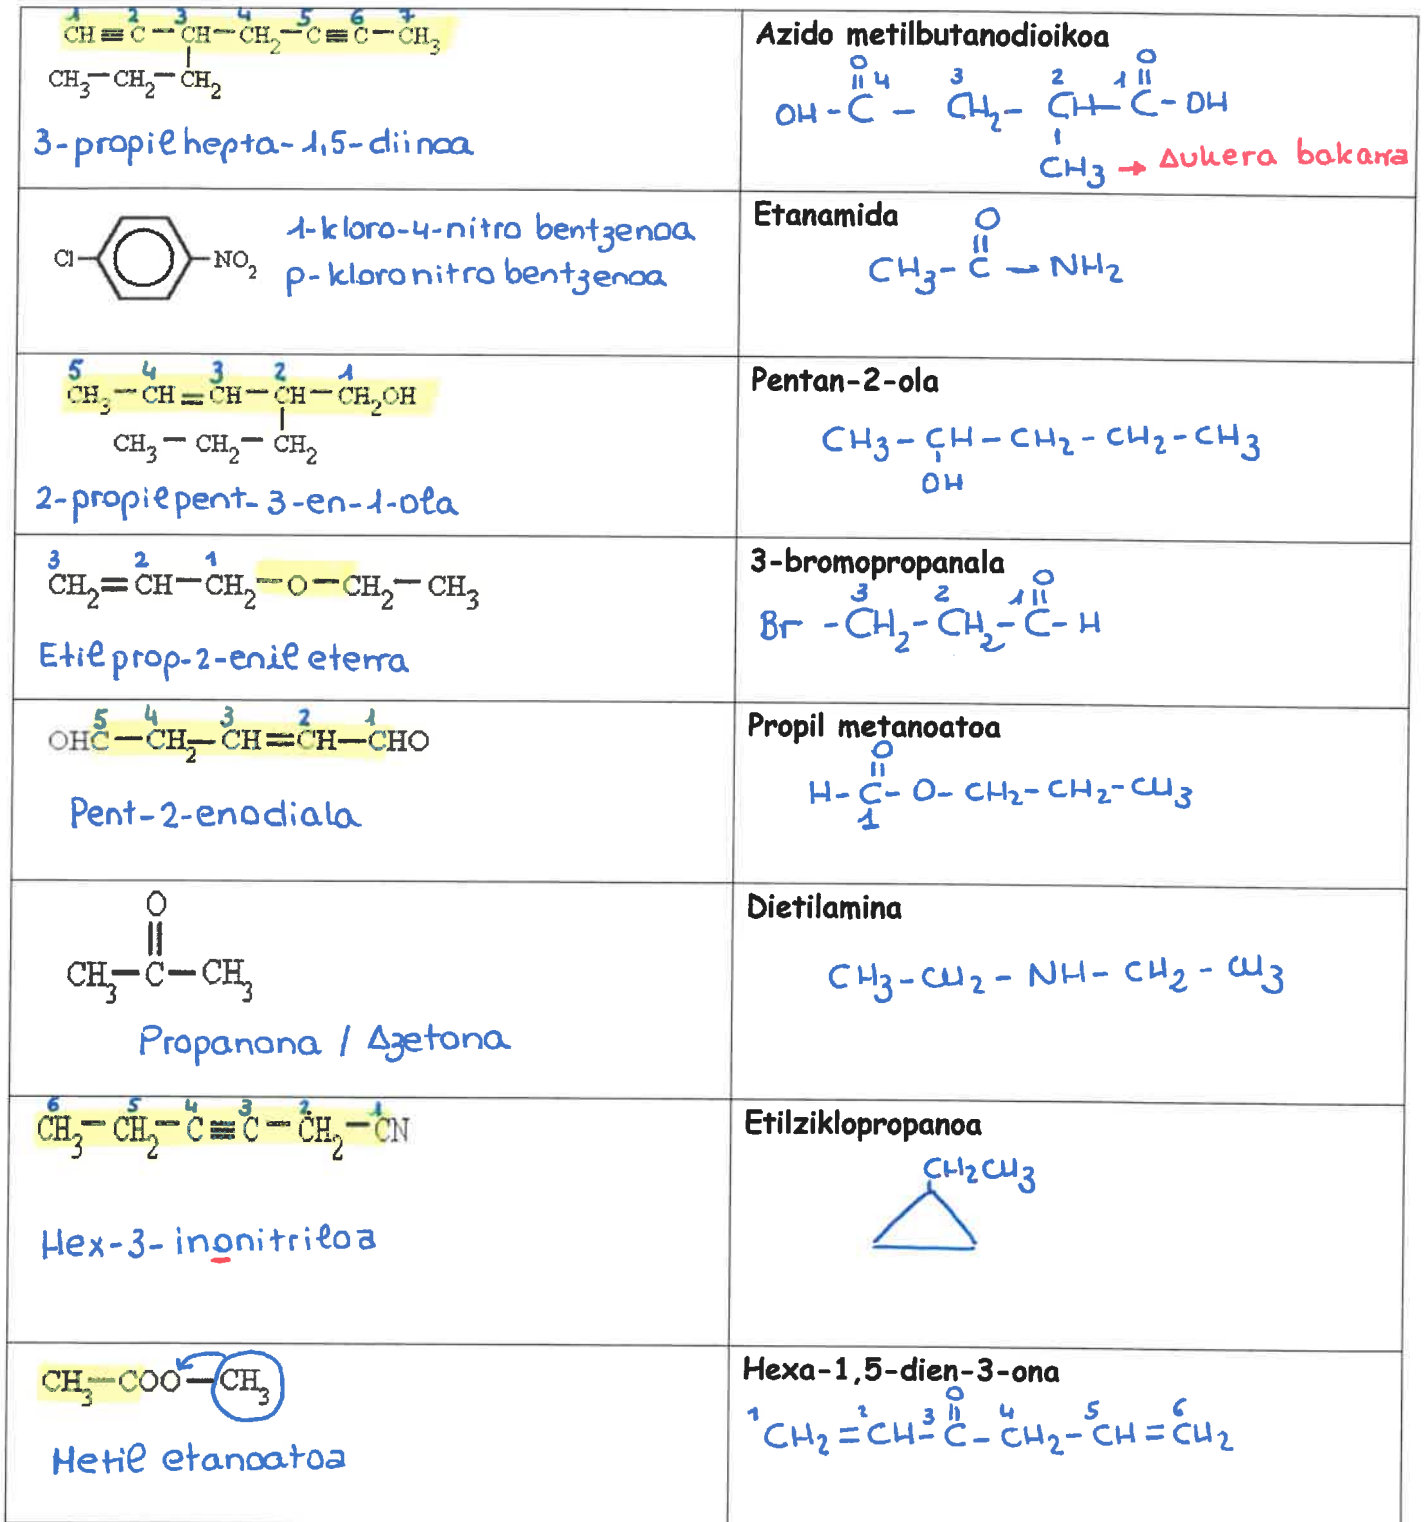 1 2 3 4 5 6 7
CH≡C−CH−CH₂−C≡C−CH₃
CH₃−CH₂−CH₂
3-propilhepta-1,5-diinoa
Azido metilbutanodioikoa
O O
4 3 2 1
OH-C-CH₂-CH-C-OH
CH₃ → Aukera bakarra
Cl NO₂
1-kloro-4-nitro bentzenoa
p-kloronitro bentzenoa
Etanamida
O
CH₃-C-NH₂
5 4 3 2 1
CH₃−CH=CH−CH−CH₂OH
CH₃−CH₂−CH₂
2-propilpent-3-en-1-ola
Pentan-2-ola
CH₃-CH-CH₂-CH₂-CH₃
OH
3 2 1
CH₂=CH−CH₂−O−CH₂−CH₃
Etil prop-2-enil eterra
3-bromopropanala
O
3 2 1
Br-CH₂-CH₂-C-H
5 4 3 2 1
OHC−CH₂−CH=CH−CHO
Pent-2-enodiala
Propil metanoatoa
O
H-C-O-CH₂-CH₂-CH₃
1
O
CH₃−C−CH₃
Propanona / Azetona
Dietilamina
CH₃-CH₂-NH-CH₂-CH₃
6 5 4 3 2 1
CH₃−CH₂−C≡C−CH₂−CN
Hex-3-inonitriloa
Etilziklopropanoa
CH₂CH₃
CH₃−COO−CH₃
Metil etanoatoa
Hexa-1,5-dien-3-ona
O
1 2 3 4 5 6
CH₂=CH-C-CH₂-CH=CH₂